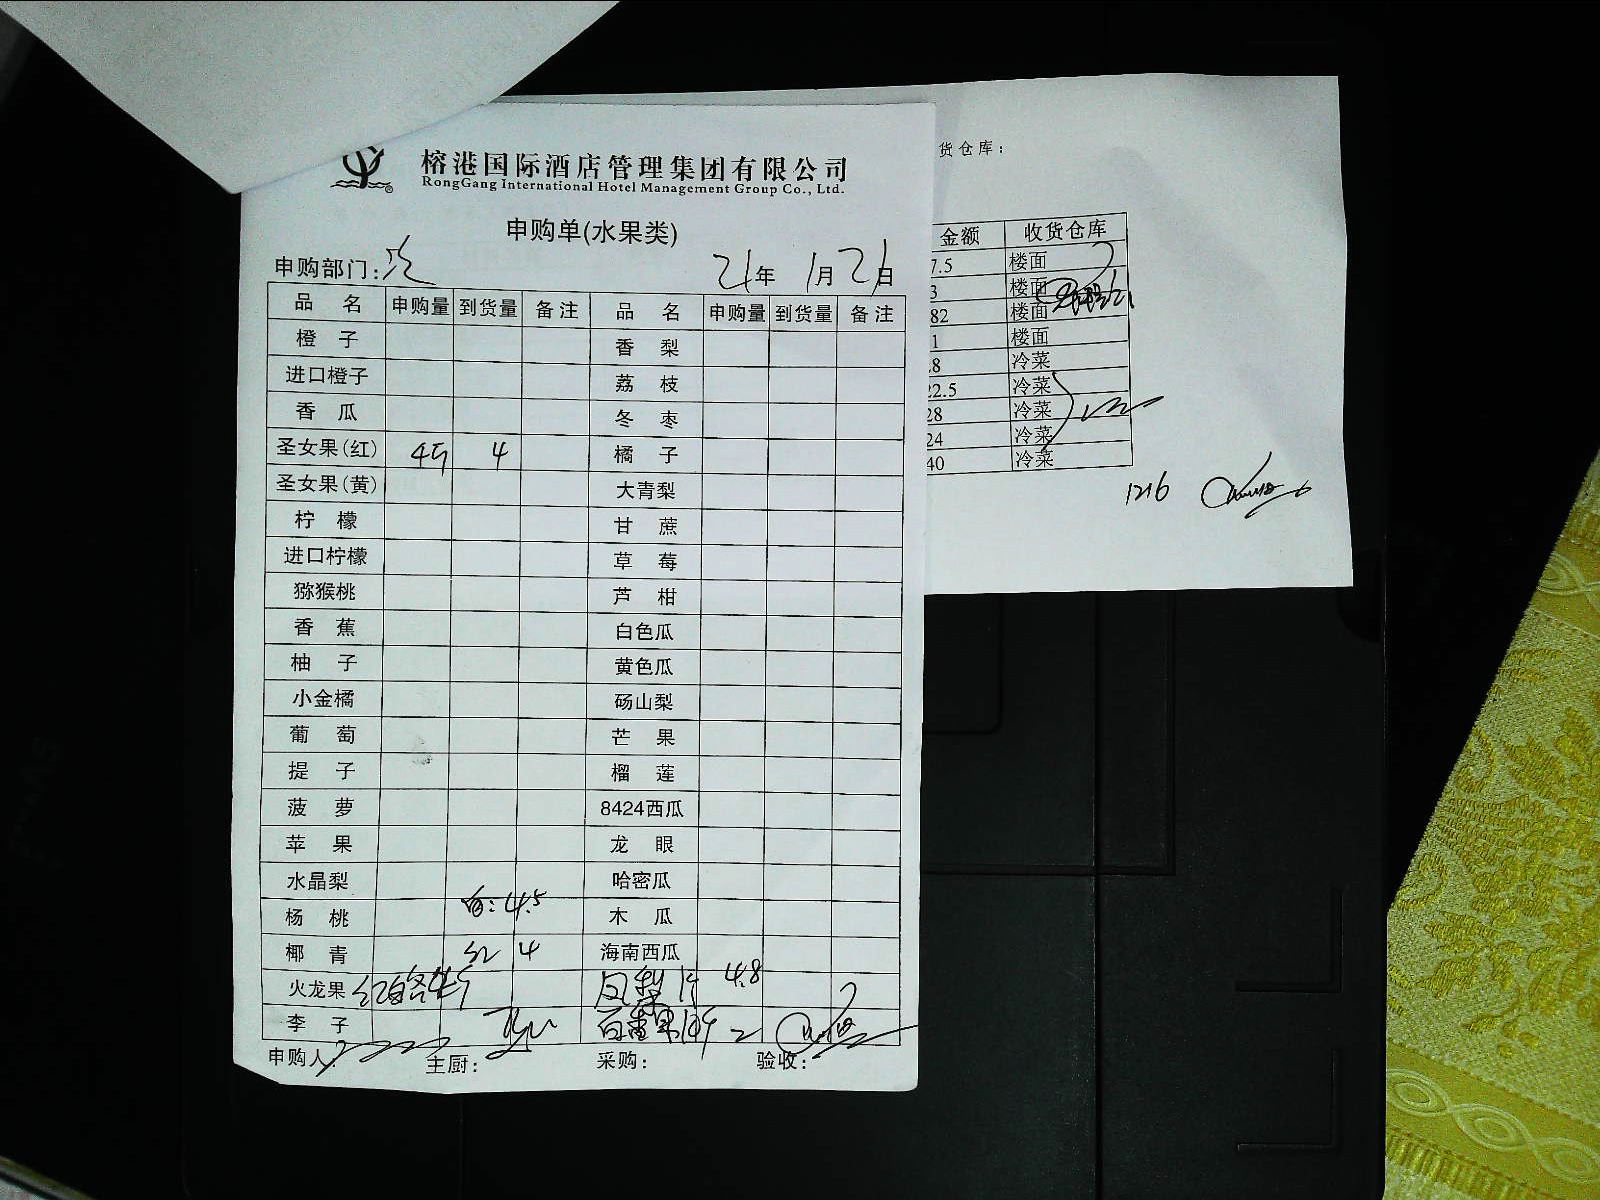 榕港国际酒店管理集团有限公司
RongGang International Hotel Management Group Co., Ltd.
申购单(水果类)
申购部门: 21年 1月 21日
品 名 申购量 到货量 备注 品 名 申购量 到货量 备注
橙 子 香 梨
进口橙子 荔 枝
香 瓜 冬 枣
圣女果(红) 4斤 4 橘 子
圣女果(黄) 大青梨
柠 檬 甘 蔗
进口柠檬 草 莓
猕猴桃 芦 柑
香 蕉 白色瓜
柚 子 黄色瓜
小金橘 砀山梨
葡 萄 芒 果
提 子 榴 莲
菠 萝 8424西瓜
苹 果 龙 眼
水晶梨 哈密瓜
杨 桃 白: 4.5 木 瓜
椰 青 红 4 海南西瓜
火龙果 红白各4斤 凤梨 4.8
李 子 百香果 2
申购人: 主厨: 采购: 验收:
货仓库:
金额 收货仓库
7.5 楼面
3 楼面
82 楼面
1 楼面
8 冷菜
22.5 冷菜
28 冷菜
24 冷菜
40 冷菜
1216